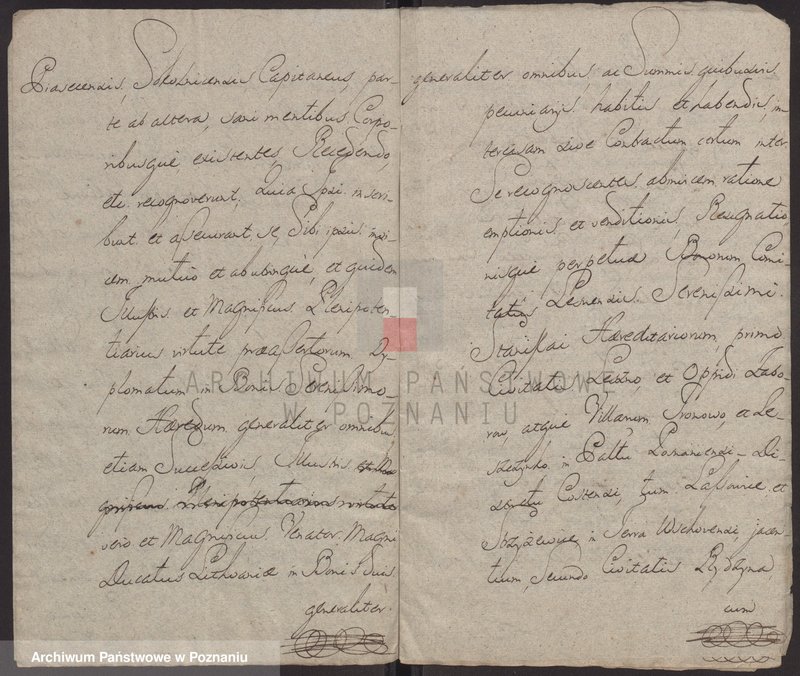 Piasecensis, Sokolnicensis Capitaneus, par-
te ab altera, sani mentibus Corpo-
ribusque existentes, Recedendo,
etc. recognoverunt, Quia Ipsi inscri-
bunt et assecurant, se, Sibi ipsis invi-
cem mutuo et ab utrinque, et quidem
Illustris et Magnificus Plenipoten-
tiarius virtute præassertorum Di-
plomatum in Bonis Serenissimo-
rum Hæredum generaliter omnibus
etiam Successivis, Illustris
Plenipotentiarius virtute
vero et Magnificus Venator Magni
Ducatus Lithvaniæ in Bonis Suis
generaliter
generaliter omnibus, ac Summis quibusvis
pecuniarijs, habitis et habendis, in-
tercisam sive Contractum certum inter
Se recognoscentes ab invicem ratione
emptionis et venditionis, Resignatio-
nisque perpetuæ Bonorum Comi-
tatus Lesnensis Serenissimi
Hæreditariorum, primo
Civitatis Leszno, et Oppidi Zabo-
rowo, atque Villarum Gronowo, et
in Palatinatu Posnaniensi Di-
strictu Costensi, tum Lassocice et
Strzyżewice in Terra Wschovensi jacen-
tium, Secundo Civitatis Rydzyna
cum
ARCHIWUM PAŃSTWOWE
W POZNANIU
Archiwum Państwowe w Poznaniu